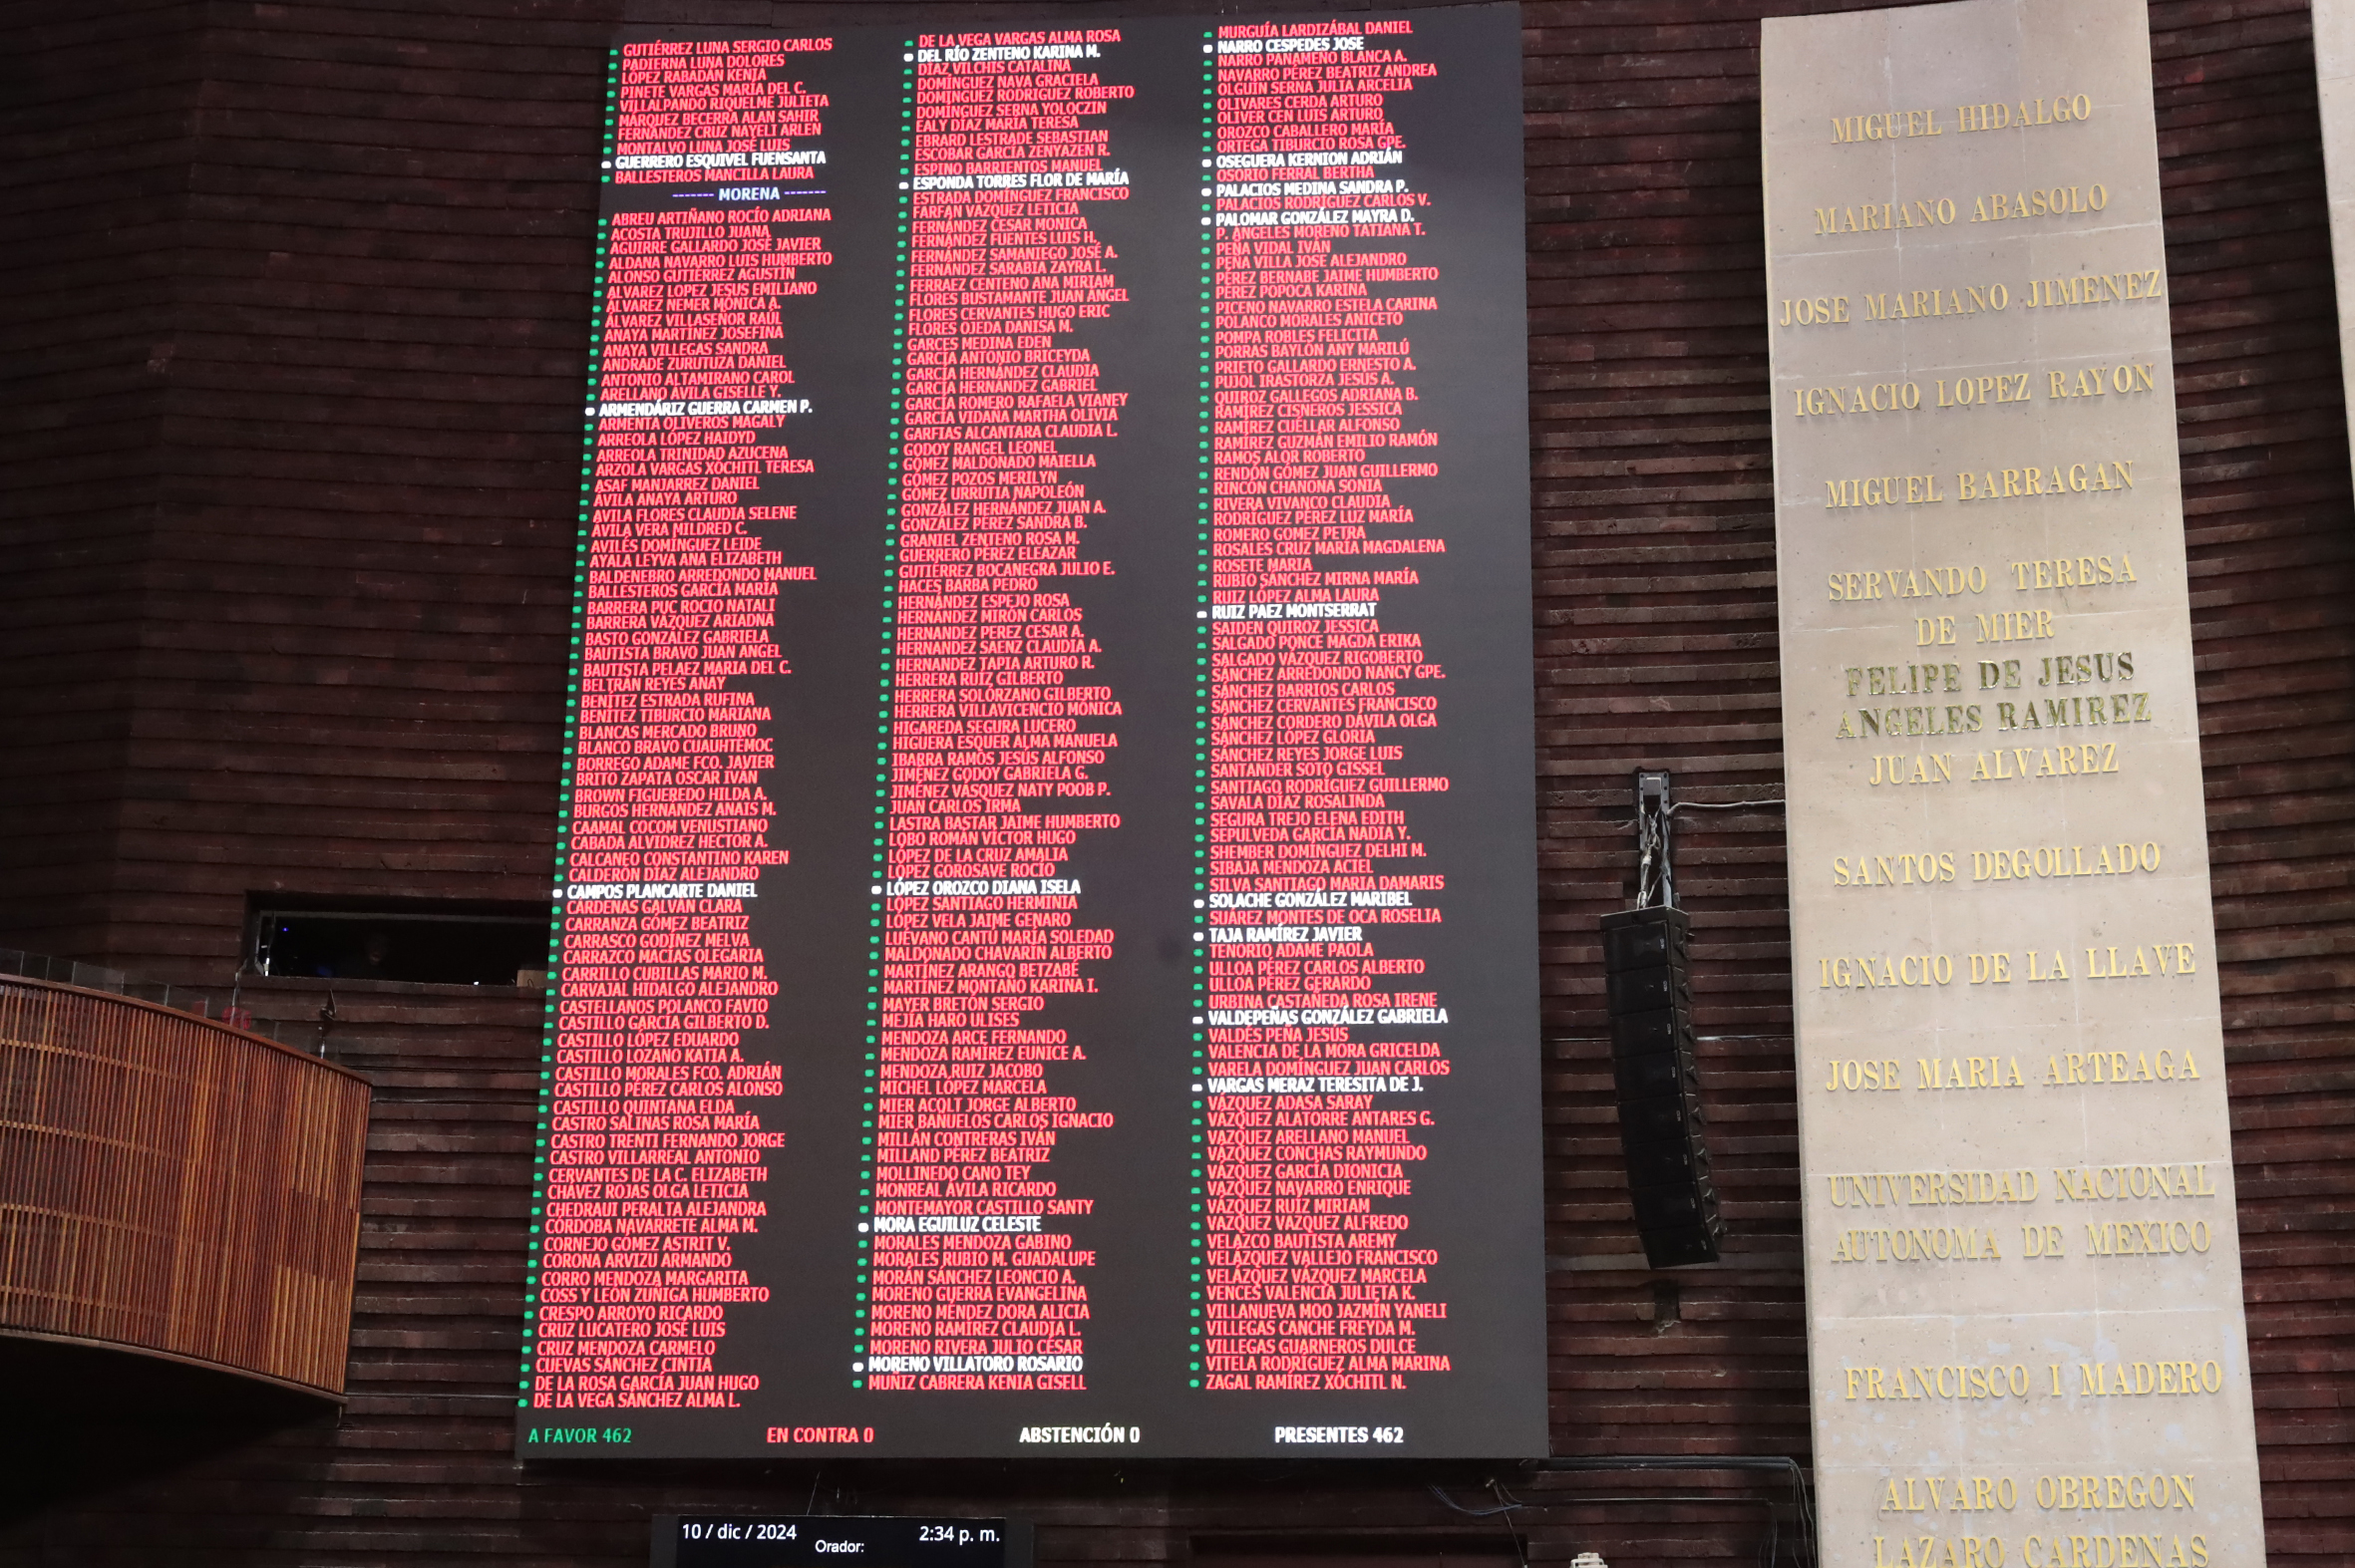 GUTIÉRREZ LUNA SERGIO CARLOS
PADIERNA LUNA DOLORES
LÓPEZ RABADÁN KENIA
PINETE VARGAS MARÍA DEL C.
VILLALPANDO RIQUELME JULIETA
MÁRQUEZ BECERRA ALAN SAHIR
FERNÁNDEZ CRUZ NAYELI ARLEN
MONTALVO LUNA JOSÉ LUIS
GUERRERO ESQUIVEL FUENSANTA
BALLESTEROS MANCILLA LAURA
------- MORENA -------
ABREU ARTIÑANO ROCÍO ADRIANA
ACOSTA TRUJILLO JUANA
AGUIRRE GALLARDO JOSÉ JAVIER
ALDANA NAVARRO LUIS HUMBERTO
ALONSO GUTIÉRREZ AGUSTÍN
ÁLVAREZ LÓPEZ JESÚS EMILIANO
ÁLVAREZ NEMER MÓNICA A.
ÁLVAREZ VILLASEÑOR RAÚL
ANAYA MARTÍNEZ JOSEFINA
ANAYA VILLEGAS SANDRA
ANDRADE ZURUTUZA DANIEL
ANTONIO ALTAMIRANO CAROL
ARELLANO ÁVILA GISELLE Y.
ARMENDÁRIZ GUERRA CARMEN P.
ARMENTA OLIVEROS MAGALY
ARREOLA LÓPEZ HAIDYD
ARREOLA TRINIDAD AZUCENA
ARZOLA VARGAS XÓCHITL TERESA
ASAF MANJARREZ DANIEL
ÁVILA ANAYA ARTURO
ÁVILA FLORES CLAUDIA SELENE
ÁVILA VERA MILDRED C.
AVILÉS DOMÍNGUEZ LEIDE
AYALA LEYVA ANA ELIZABETH
BALDENEBRO ARREDONDO MANUEL
BALLESTEROS GARCÍA MARÍA
BARRERA PUC ROCÍO NATALÍ
BARRERA VÁZQUEZ ARIADNA
BASTO GONZÁLEZ GABRIELA
BAUTISTA BRAVO JUAN ÁNGEL
BAUTISTA PELÁEZ MARÍA DEL C.
BELTRÁN REYES ANAY
BENÍTEZ ESTRADA RUFINA
BENÍTEZ TIBURCIO MARIANA
BLANCAS MERCADO BRUNO
BLANCO BRAVO CUAUHTÉMOC
BORREGO ADAME FCO. JAVIER
BRITO ZAPATA ÓSCAR IVÁN
BROWN FIGUEREDO HILDA A.
BURGOS HERNÁNDEZ ANAÍS M.
CAAMAL COCOM VENUSTIANO
CABADA ALVIDREZ HÉCTOR A.
CALCANEO CONSTANTINO KAREN
CALDERÓN DÍAZ ALEJANDRO
CAMPOS PLANCARTE DANIEL
CÁRDENAS GALVÁN CLARA
CARRANZA GÓMEZ BEATRIZ
CARRASCO GODÍNEZ MELVA
CARRAZCO MACÍAS OLEGARIA
CARRILLO CUBILLAS MARIO M.
CARVAJAL HIDALGO ALEJANDRO
CASTELLANOS POLANCO FAVIO
CASTILLO GARCÍA GILBERTO D.
CASTILLO LÓPEZ EDUARDO
CASTILLO LOZANO KATIA A.
CASTILLO MORALES FCO. ADRIÁN
CASTILLO PÉREZ CARLOS ALONSO
CASTILLO QUINTANA ELDA
CASTRO SALINAS ROSA MARÍA
CASTRO TRENTI FERNANDO JORGE
CASTRO VILLARREAL ANTONIO
CERVANTES DE LA C. ELIZABETH
CHÁVEZ ROJAS OLGA LETICIA
CHEDRAUI PERALTA ALEJANDRA
CÓRDOBA NAVARRETE ALMA M.
CORNEJO GÓMEZ ASTRIT V.
CORONA ARVIZU ARMANDO
CORRO MENDOZA MARGARITA
COSS Y LEÓN ZÚÑIGA HUMBERTO
CRESPO ARROYO RICARDO
CRUZ LUCATERO JOSÉ LUIS
CRUZ MENDOZA CARMELO
CUEVAS SÁNCHEZ CINTIA
DE LA ROSA GARCÍA JUAN HUGO
DE LA VEGA SÁNCHEZ ALMA L.
DE LA VEGA VARGAS ALMA ROSA
DEL RÍO ZENTENO KARINA M.
DÍAZ VILCHIS CATALINA
DOMÍNGUEZ NAVA GRACIELA
DOMÍNGUEZ RODRÍGUEZ ROBERTO
DOMÍNGUEZ SERNA YOLOCZIN
EALY DÍAZ MARÍA TERESA
EBRARD LESTRADE SEBASTIÁN
ESCOBAR GARCÍA ZENYAZEN R.
ESPINO BARRIENTOS MANUEL
ESPONDA TORRES FLOR DE MARÍA
ESTRADA DOMÍNGUEZ FRANCISCO
FARFÁN VÁZQUEZ LETICIA
FERNÁNDEZ CÉSAR MÓNICA
FERNÁNDEZ FUENTES LUIS H.
FERNÁNDEZ SAMANIEGO JOSÉ A.
FERNÁNDEZ SARABIA ZAYRA L.
FERRÁEZ CENTENO ANA MIRIAM
FLORES BUSTAMANTE JUAN ÁNGEL
FLORES CERVANTES HUGO ERIC
FLORES OJEDA DANISA M.
GARCÉS MEDINA EDÉN
GARCÍA ANTONIO BRICEYDA
GARCÍA HERNÁNDEZ CLAUDIA
GARCÍA HERNÁNDEZ GABRIEL
GARCÍA ROMERO RAFAELA VIANEY
GARCÍA VIDAÑA MARTHA OLIVIA
GARFIAS ALCÁNTARA CLAUDIA L.
GODOY RANGEL LEONEL
GÓMEZ MALDONADO MAIELLA
GÓMEZ POZOS MERILYN
GÓMEZ URRUTIA NAPOLEÓN
GONZÁLEZ HERNÁNDEZ JUAN A.
GONZÁLEZ PÉREZ SANDRA B.
GRANIEL ZENTENO ROSA M.
GUERRERO PÉREZ ELEAZAR
GUTIÉRREZ BOCANEGRA JULIO E.
HACES BARBA PEDRO
HERNÁNDEZ ESPEJO ROSA
HERNÁNDEZ MIRÓN CARLOS
HERNÁNDEZ PÉREZ CÉSAR A.
HERNÁNDEZ SÁENZ CLAUDIA A.
HERNÁNDEZ TAPIA ARTURO R.
HERRERA RUÍZ GILBERTO
HERRERA SOLÓRZANO GILBERTO
HERRERA VILLAVICENCIO MÓNICA
HIGAREDA SEGURA LUCERO
HIGUERA ESQUER ALMA MANUELA
IBARRA RAMOS JESÚS ALFONSO
JIMÉNEZ GODOY GABRIELA G.
JIMÉNEZ VÁSQUEZ NATY POOB P.
JUAN CARLOS IRMA
LASTRA BASTAR JAIME HUMBERTO
LOBO ROMÁN VÍCTOR HUGO
LÓPEZ DE LA CRUZ AMALIA
LÓPEZ GOROSAVE ROCÍO
LÓPEZ OROZCO DIANA ISELA
LÓPEZ SANTIAGO HERMINIA
LÓPEZ VELA JAIME GENARO
LUÉVANO CANTÚ MARÍA SOLEDAD
MALDONADO CHAVARÍN ALBERTO
MARTÍNEZ ARANGO BETZABÉ
MARTÍNEZ MONTAÑO KARINA I.
MAYER BRETÓN SERGIO
MEJÍA HARO ULISES
MENDOZA ARCE FERNANDO
MENDOZA RAMÍREZ EUNICE A.
MENDOZA RUIZ JACOBO
MICHEL LÓPEZ MARCELA
MIER ACOLT JORGE ALBERTO
MIER BAÑUELOS CARLOS IGNACIO
MILLÁN CONTRERAS IVÁN
MILLAND PÉREZ BEATRIZ
MOLLINEDO CANO TEY
MONREAL ÁVILA RICARDO
MONTEMAYOR CASTILLO SANTY
MORA EGUILUZ CELESTE
MORALES MENDOZA GABINO
MORALES RUBIO M. GUADALUPE
MORÁN SÁNCHEZ LEONCIO A.
MORENO GUERRA EVANGELINA
MORENO MÉNDEZ DORA ALICIA
MORENO RAMÍREZ CLAUDIA L.
MORENO RIVERA JULIO CÉSAR
MORENO VILLATORO ROSARIO
MUÑIZ CABRERA KENIA GISELL
MURGUÍA LARDIZÁBAL DANIEL
NARRO CÉSPEDES JOSÉ
NARRO PANAMEÑO BLANCA A.
NAVARRO PÉREZ BEATRIZ ANDREA
OLGUÍN SERNA JULIA ARCELIA
OLIVARES CERDA ARTURO
OLIVER CEN LUIS ARTURO
OROZCO CABALLERO MARÍA
ORTEGA TIBURCIO ROSA GPE.
OSEGUERA KERNION ADRIÁN
OSORIO FERRAL BERTHA
PALACIOS MEDINA SANDRA P.
PALACIOS RODRÍGUEZ CARLOS V.
PALOMAR GONZÁLEZ MAYRA D.
P. ÁNGELES MORENO TATIANA T.
PEÑA VIDAL IVÁN
PEÑA VILLA JOSÉ ALEJANDRO
PÉREZ BERNABE JAIME HUMBERTO
PÉREZ POPOCA KARINA
PICENO NAVARRO ESTELA CARINA
POLANCO MORALES ANICETO
POMPA ROBLES FELÍCITA
PORRAS BAYLÓN ANY MARILÚ
PRIETO GALLARDO ERNESTO A.
PUJOL IRASTORZA JESÚS A.
QUIROZ GALLEGOS ADRIANA B.
RAMÍREZ CISNEROS JESSICA
RAMÍREZ CUÉLLAR ALFONSO
RAMÍREZ GUZMÁN EMILIO RAMÓN
RAMOS ALOR ROBERTO
RENDÓN GÓMEZ JUAN GUILLERMO
RINCÓN CHANONA SONIA
RIVERA VIVANCO CLAUDIA
RODRÍGUEZ PÉREZ LUZ MARÍA
ROMERO GÓMEZ PETRA
ROSALES CRUZ MARÍA MAGDALENA
ROSETE MARÍA
RUBIO SÁNCHEZ MIRNA MARÍA
RUIZ LÓPEZ ALMA LAURA
RUIZ PÁEZ MONTSERRAT
SAIDEN QUIROZ JESSICA
SALGADO PONCE MAGDA ERIKA
SALGADO VÁZQUEZ RIGOBERTO
SÁNCHEZ ARREDONDO NANCY GPE.
SÁNCHEZ BARRIOS CARLOS
SÁNCHEZ CERVANTES FRANCISCO
SÁNCHEZ CORDERO DÁVILA OLGA
SÁNCHEZ LÓPEZ GLORIA
SÁNCHEZ REYES JORGE LUIS
SANTANDER SOTO GISSEL
SANTIAGO RODRÍGUEZ GUILLERMO
SAVALA DÍAZ ROSALINDA
SEGURA TREJO ELENA EDITH
SEPÚLVEDA GARCÍA NADIA Y.
SHEMBER DOMÍNGUEZ DELHI M.
SIBAJA MENDOZA ACIEL
SILVA SANTIAGO MARÍA DAMARIS
SOLACHE GONZÁLEZ MARIBEL
SUÁREZ MONTES DE OCA ROSELIA
TAJA RAMÍREZ JAVIER
TENORIO ADAME PAOLA
ULLOA PÉREZ CARLOS ALBERTO
ULLOA PÉREZ GERARDO
URBINA CASTAÑEDA ROSA IRENE
VALDEPEÑAS GONZÁLEZ GABRIELA
VALDÉS PEÑA JESÚS
VALENCIA DE LA MORA GRICELDA
VARELA DOMÍNGUEZ JUAN CARLOS
VARGAS MERAZ TERESITA DE J.
VÁZQUEZ ADASA SARAY
VÁZQUEZ ALATORRE ANTARES G.
VÁZQUEZ ARELLANO MANUEL
VÁZQUEZ CONCHAS RAYMUNDO
VÁZQUEZ GARCÍA DIONICIA
VÁZQUEZ NAVARRO ENRIQUE
VÁZQUEZ RUIZ MIRIAM
VÁZQUEZ VÁZQUEZ ALFREDO
VELAZCO BAUTISTA AREMY
VELÁZQUEZ VALLEJO FRANCISCO
VELÁZQUEZ VÁZQUEZ MARCELA
VENCES VALENCIA JULIETA K.
VILLANUEVA MOO JAZMÍN YANELI
VILLEGAS CANCHÉ FREYDA M.
VILLEGAS GUARNEROS DULCE
VITELA RODRÍGUEZ ALMA MARINA
ZAGAL RAMÍREZ XÓCHITL N.
A FAVOR 462 EN CONTRA 0 ABSTENCIÓN 0 PRESENTES 462
10 / dic / 2024 2:34 p. m.
Orador:
MIGUEL HIDALGO
MARIANO ABASOLO
JOSE MARIANO JIMENEZ
IGNACIO LOPEZ RAYON
MIGUEL BARRAGAN
SERVANDO TERESA
DE MIER
FELIPE DE JESUS
ANGELES RAMIREZ
JUAN ALVAREZ
SANTOS DEGOLLADO
IGNACIO DE LA LLAVE
JOSE MARIA ARTEAGA
UNIVERSIDAD NACIONAL
AUTONOMA DE MEXICO
FRANCISCO I MADERO
ALVARO OBREGON
LAZARO CARDENAS